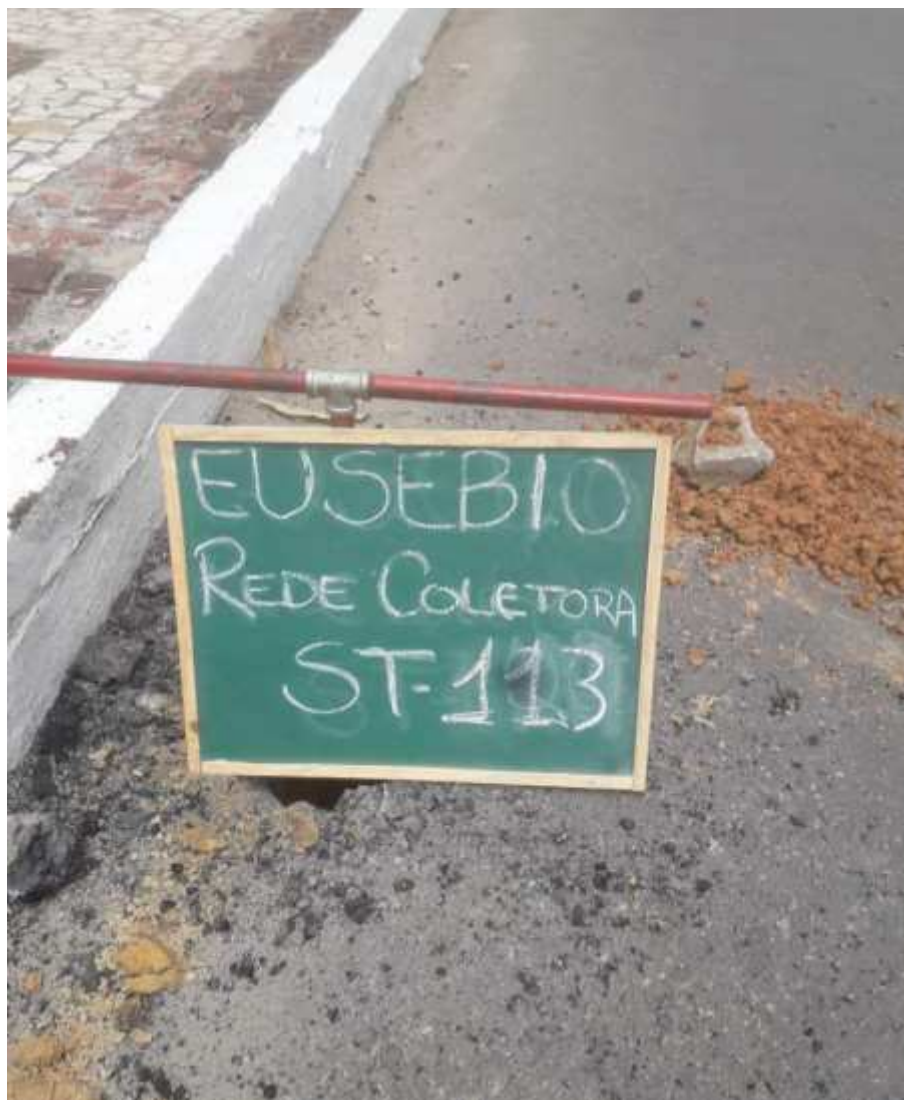 EUSEBIO
REDE COLETORA
ST-113